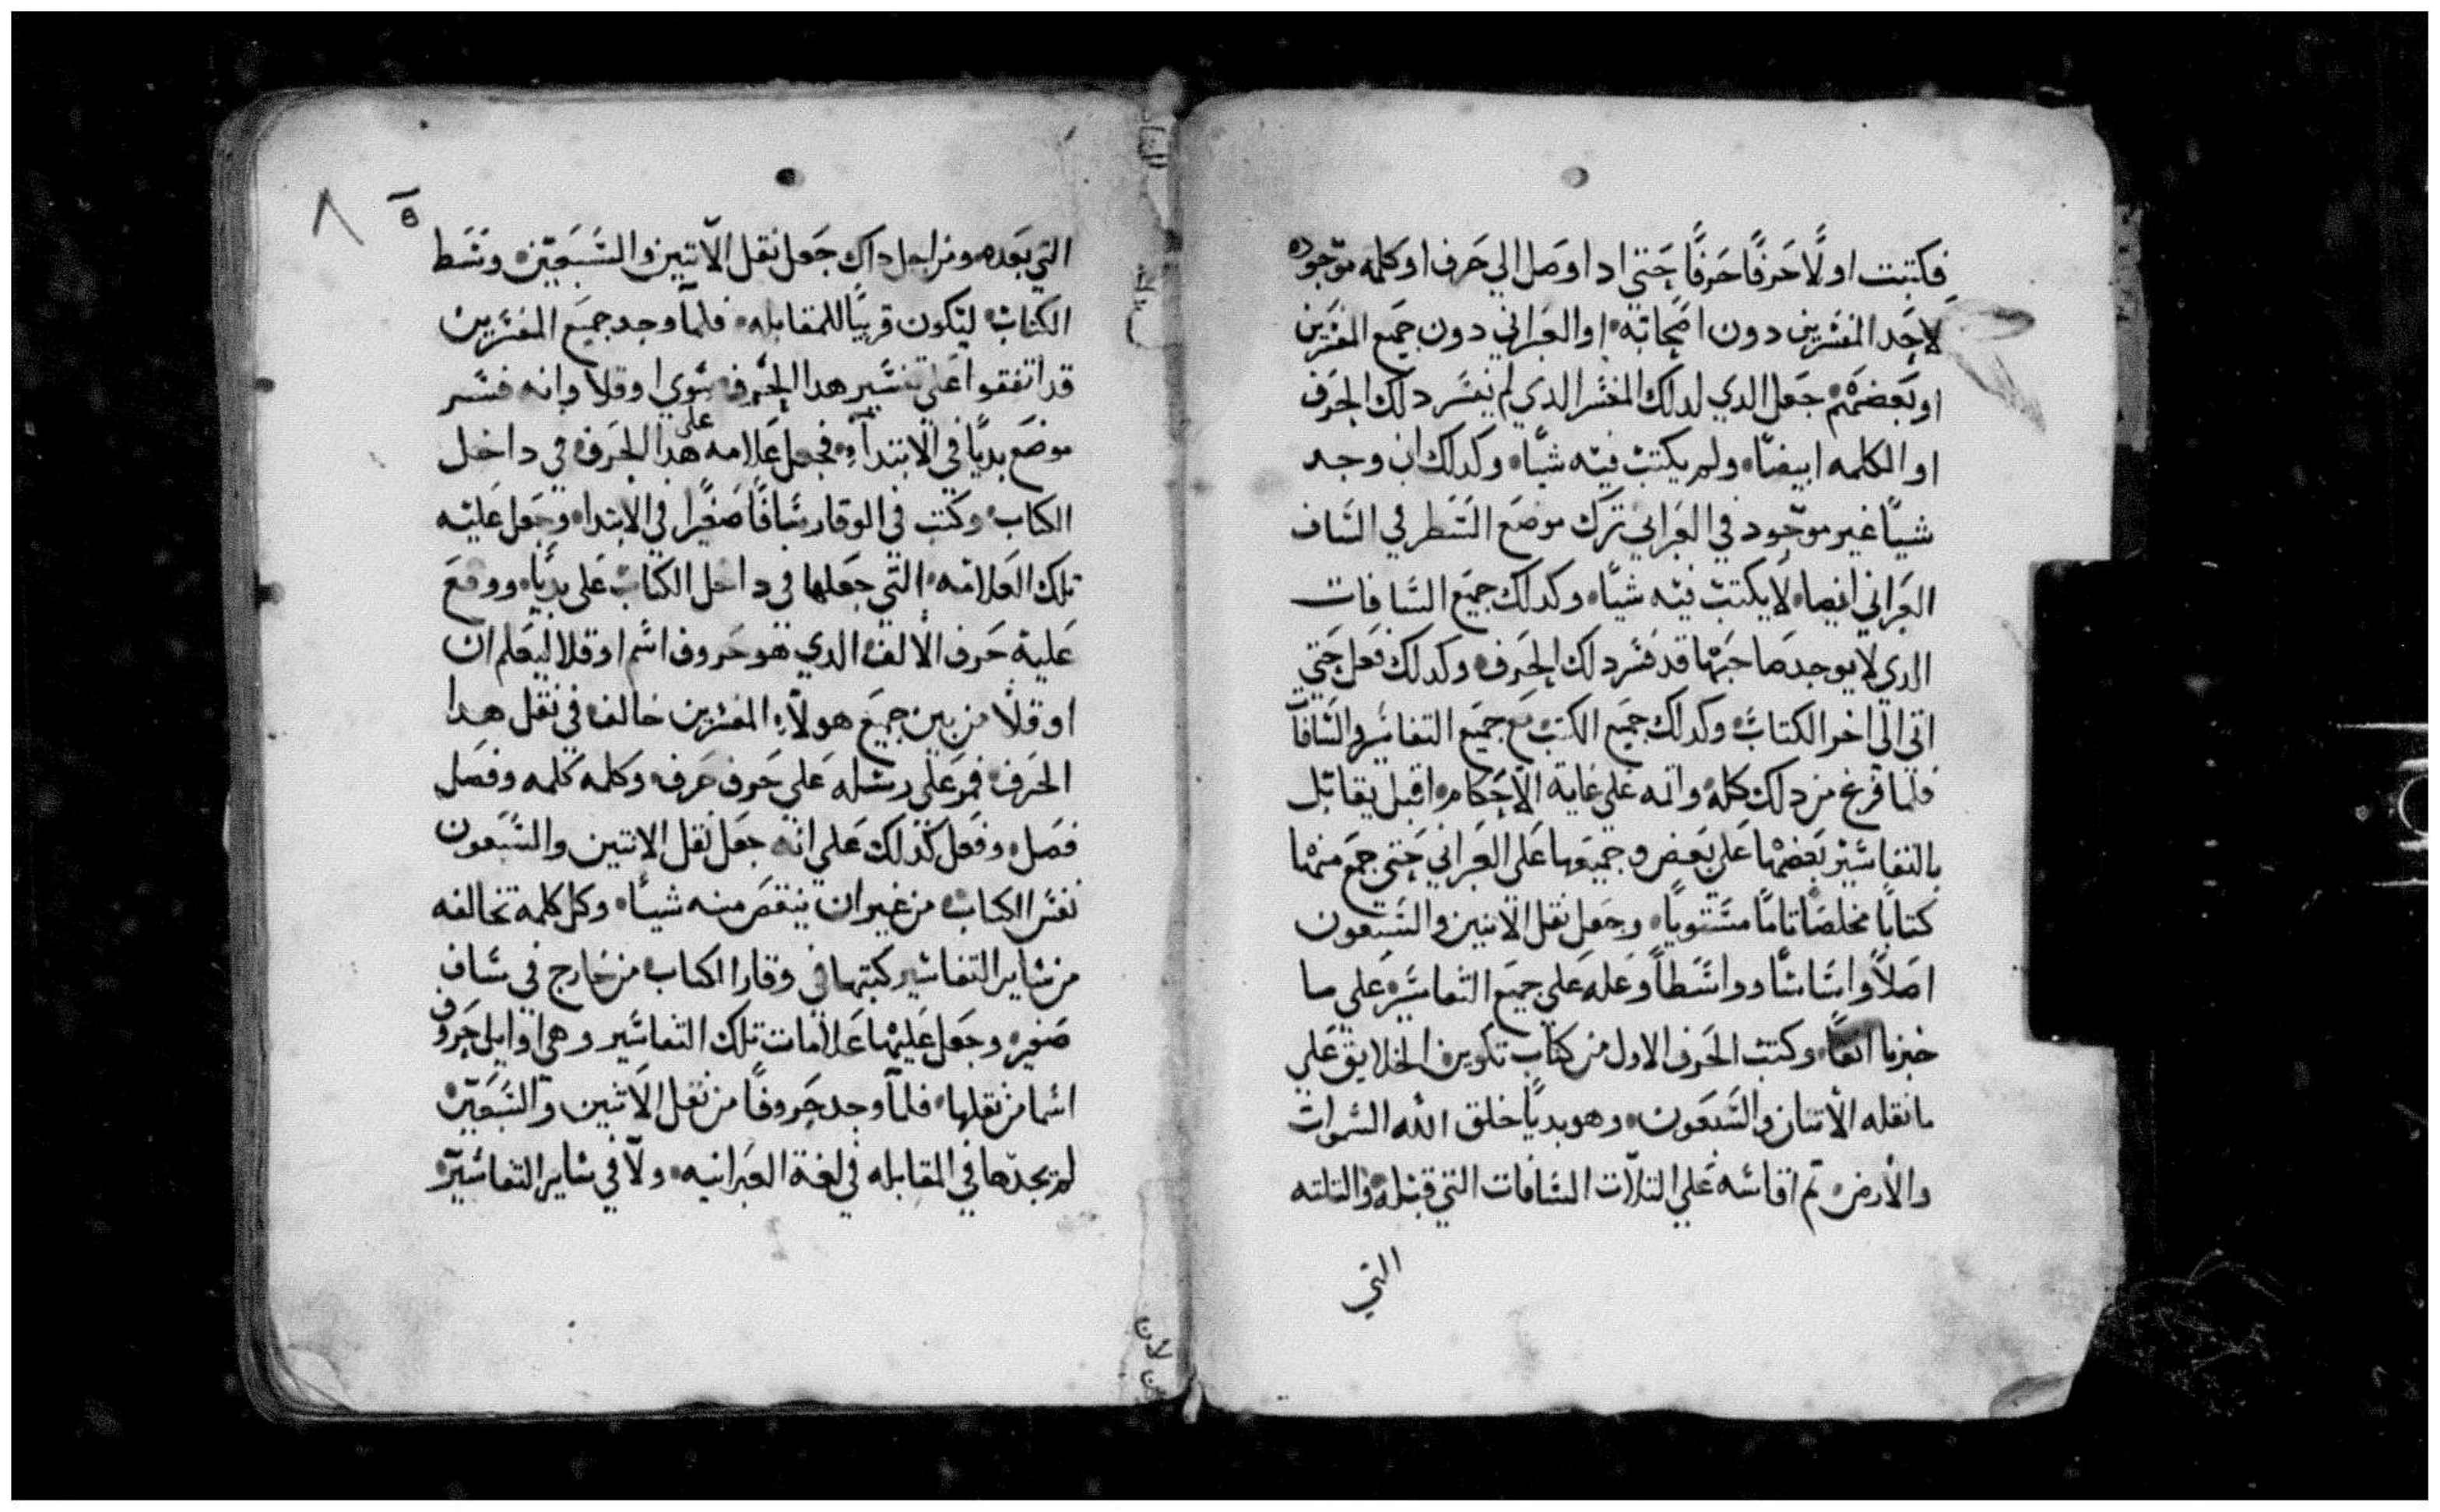 فكتبت اولًا حَرفًا حَرفًا حَتي ادا وصَل الي حَرف او كلمه موَجوده
لاحَد المفسَرين دون اصَحابه او العَبراني دون جميَع المفسَرين
او بَعضهَم جعَل الدي لدلك المفسَر الدي لم يفسَر دلك الحَرف
او الكلمه ابيضًا ولم يكتب فيه شيًا وكدلك ان وجد
شيًا غير موَجود في العَبراني ترك موضَع السَطر في السَاف
العَبراني ايضا لا يكتب فيه شيًا وكدلك جميَع السَافات
الدي لا يوجد صَاحبَها قد فسَر دلك الحَرف وكدلك فعَل حَتي
اتي الي اخر الكتاب وكدلك جميَع الكتب مَع جميَع التفاسَير والسَافات
فلما فرغ من دلك كله واتمه عَلي غاية الاحَكام اقبل يقابل
بالتفاسَير بعَضها عَلي بعَض وجميعَها عَلي العَبراني حَتي جمَع منها
كتابًا مخلصًا تامًا مسَتويًا وجعَل نقل الاتنين والسَبعون
اصَلًا واسَاسًا وواسَطًا وعَله عَلي جميَع التفاسَير عَلي ما
خبرنا انفًا وكتب الحَرف الاول من كتاب تكوين الخلايق عَلي
ما نقله الاتنان والسَبعَون وهو بديًا خلق الله السَموات
والارض تم اقاسَه عَلي التلات السَافات التي قبله والتلته
التي
٨
ة
التي بعَده ومن اجل داك جعَل نقل الاتنين والسَبعَين وسَط
الكتاب ليكون قريبًا للمقابله فلما وجد جميَع المفسَرين
قد اتفقوا عَلي تفسَير هدا الحَرف سَوي اوقلا وانه فسَر
موضَع بديًا في الابتداء فجعَل عَلامه علي هدا الحَرف في داخل
الكتاب وكتب في الوقار سَافًا صَغيرًا في الابتدا وجعَل عَليه
تلك العَلامه التي جعَلها في داخل الكتاب عَلي بديًا ووقعَ
عَليه حَرف الالف الدي هو حَروف اسَم اوقلا ليعَلم ان
اوقلا من بين جميَع هولاء المفسَرين خالف في نقل هدا
الحَرف فمر عَلي رسَله عَلي حَرف حَرف وكلمه كلمه وفصَل
فصَل وفعَل كدلك عَلي انه جعَل نقل الاتنين والسَبعَون
نفسَ الكتاب من غير ان ينقصَ منه شيًا وكل كلمة تخالفه
من سَاير التفاسَير كتبها في وقار الكتاب من خارج في سَاف
صَغير وجعَل عَليها عَلامات تلك التفاسَير وهي اوايل حَروف
اسَما من نقلها فلما وجد حَروفًا من نقل الاتنين والسَبعَين
لم يجدها في المقابله في لغة العَبرانيه ولا في سَاير التفاسَير